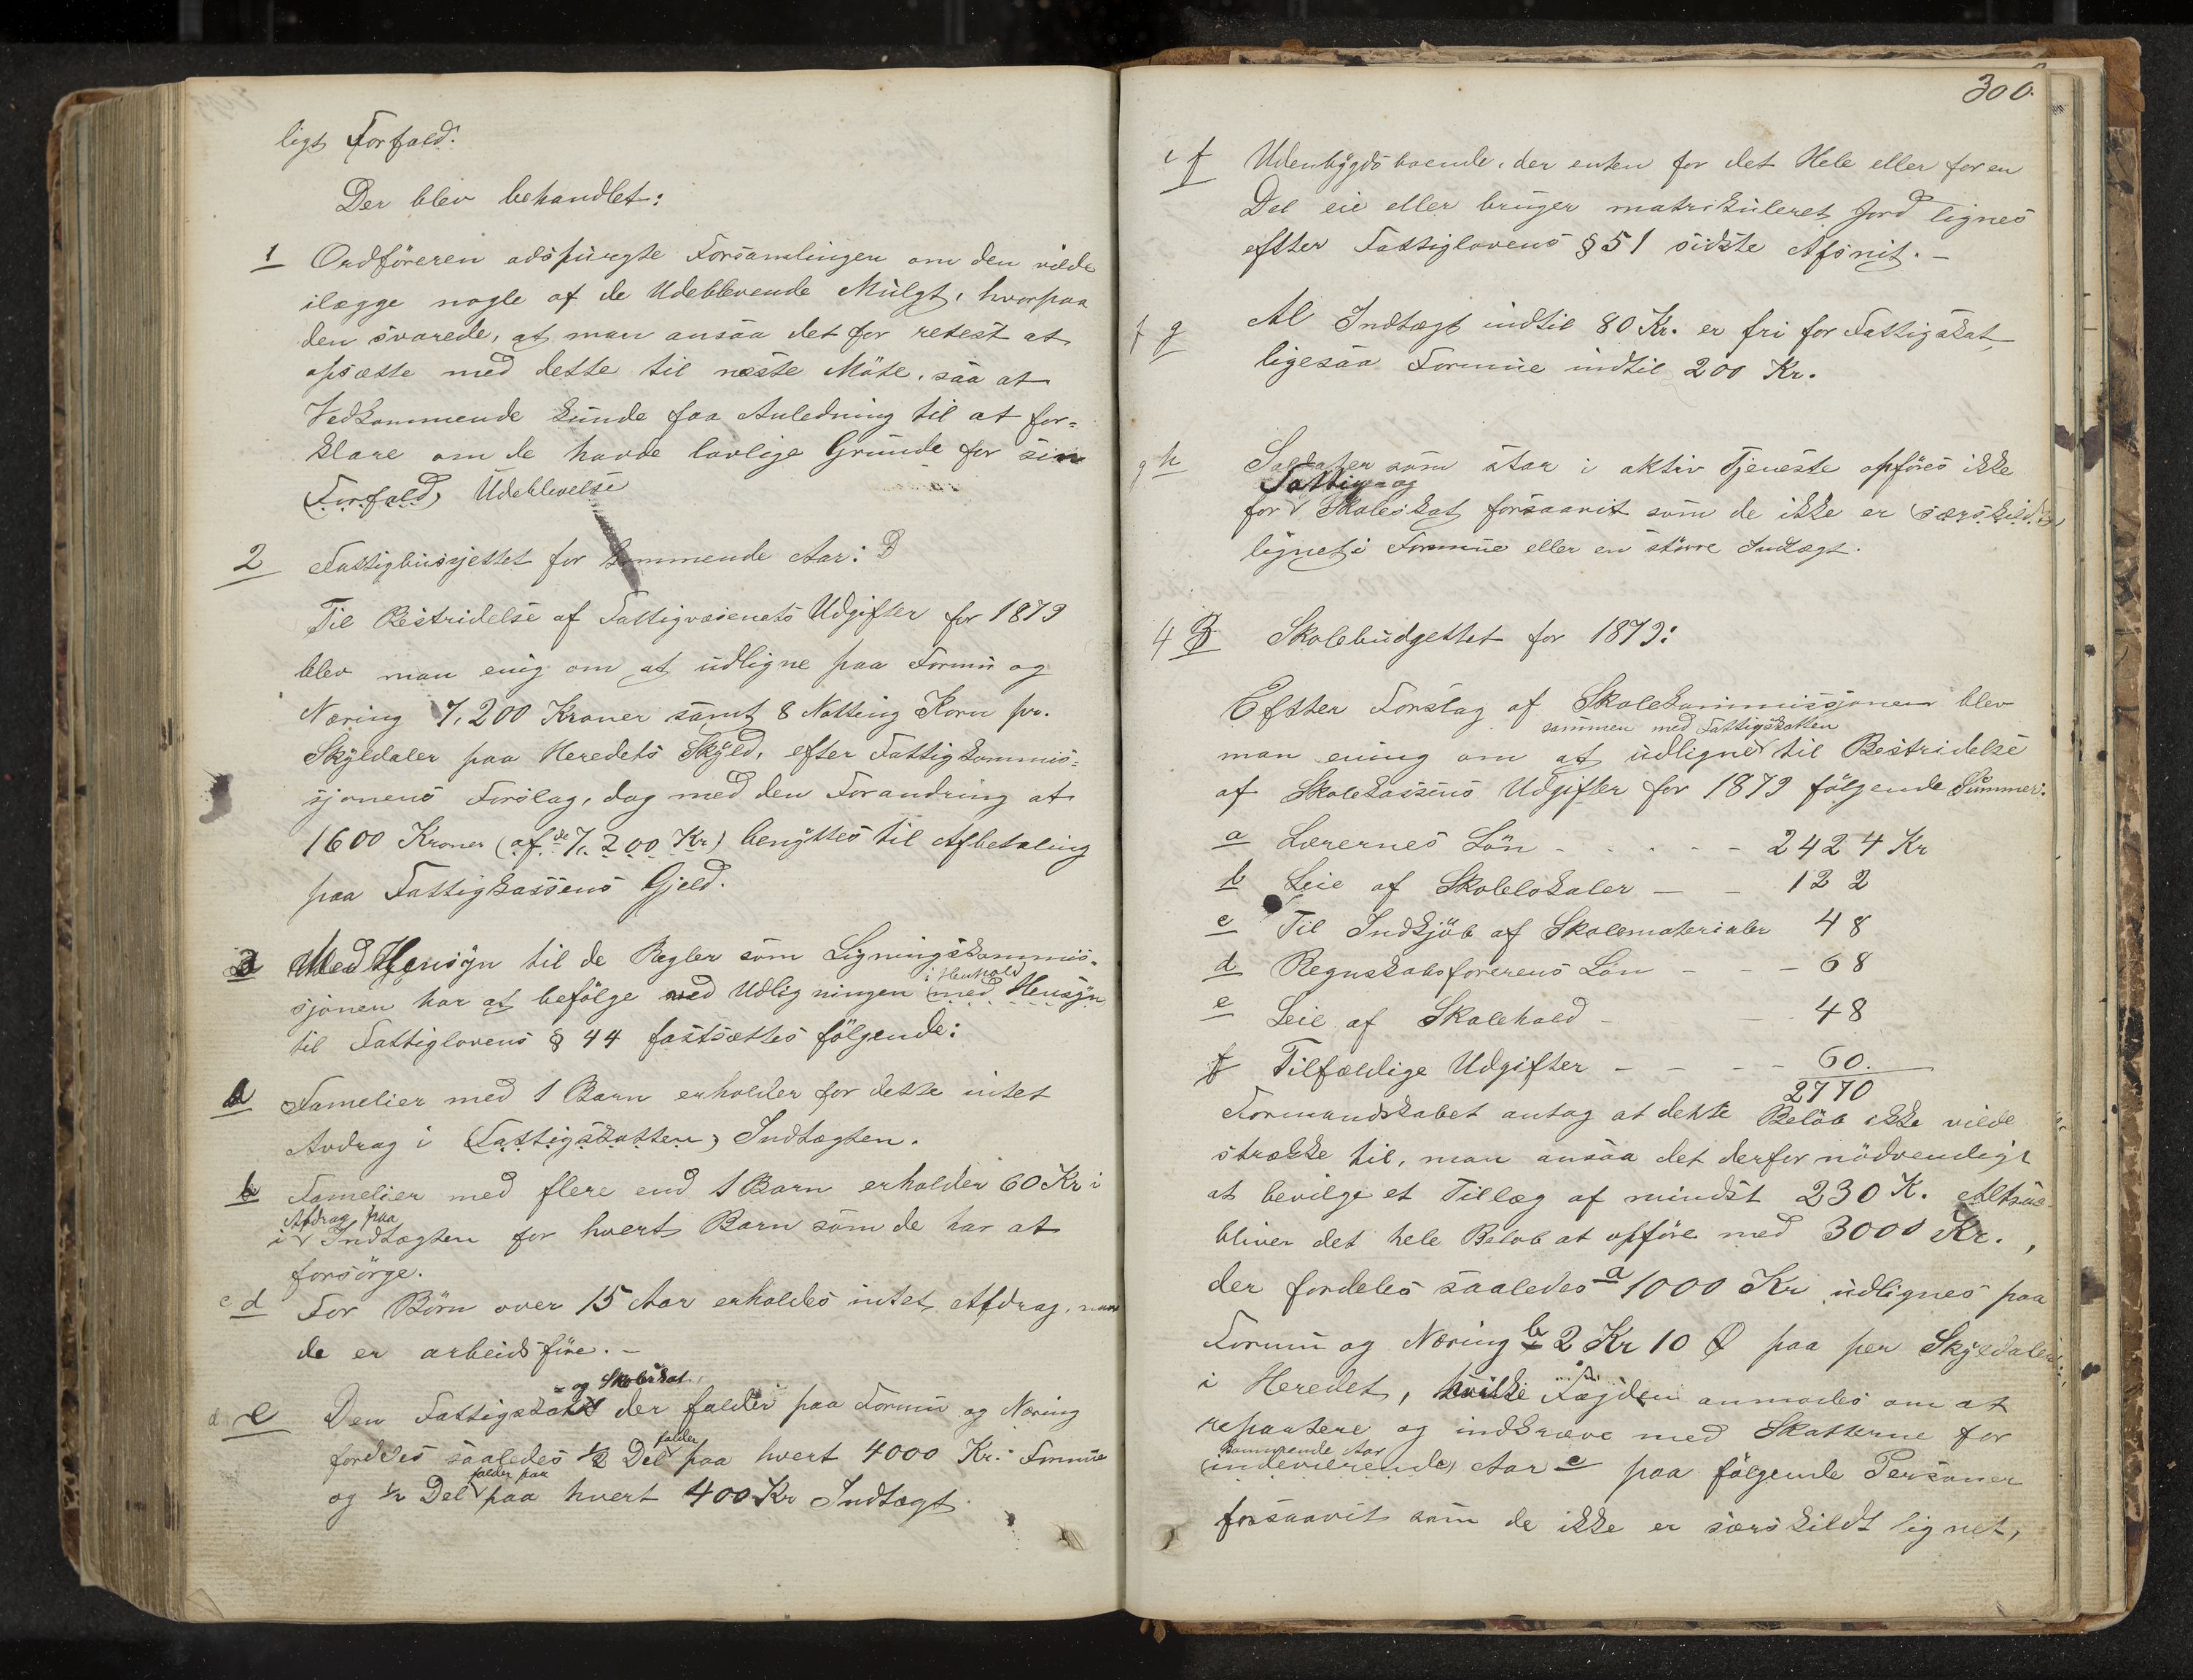 ligt Forfald.
Der blev behandlet:
1 Ordföreren adspurgte Forsamlingen om den vilde
ilægge nogle af de Udeblevende Mulgt, hvorpaa
den svarede, at man ansaa det for retest at
opsætte med dette til næste Möte, saa at
Vedkommende kunde faa Anledning til at for=
klare om de havde lovlige Grunde for sin
(Forfald) Udeblivelse
2 Fattigbusjettet for kommende Aar:
Til Bestridelse af Fattigvæsenets Udgifter for 1879
blev man enig om at udligne paa Formu og
Næring 7,200 Kroner samt 8 Notting Korn pr.
Skyldaler paa Heredets Skyld, efter Fattigkommis=
sjonens Forslag, dog med den Forandring at
1600 Kroner (af de 7,200 Kr) benyttes til Afbetaling
paa Fattigkassens Gjeld.
3 Med Hensyn til de Regler som Ligningskommis-
sjonen har at befölge ved Udligningen i Henhold (med Hensyn
til Fattiglovens § 44 fastsættes fölgende:
a Famelier med 1 Barn erholder for dette intet
Avdrag i (Fattigskatten) Indtægten.
b Famelier med flere end 1 Barn erholder 60 Kr i
Afdrag paa
i Indtægten for hvert Barn som de har at
forsörge.
c d For Börn over 15 Aar erholdes intet Afdrag, naar
de er arbeidsföre. -
- og Skoleskat
d e Den Fattigskat der falder paa Formu og Næring
fordeles saaledes 1/2 Del falder paa hvert 4000 Kr. Formue
og 1/2 Del falder paa paa hvert 400 Kr Indtægt.
300.
e f Udenbygdsboende, der enten for det Hele eller for en
Del eie eller bruger matrikuleret Jord lignes
efter Fattiglovens § 51 sidste Afsnit. -
f g Al Indtægt indtil 80 Kr. er fri for Fattigskat
ligesaa Formue indtil 200 Kr.
g h Soldater som staar i aktiv Tjeneste opföres ikke
Fattig- og
for Skoleskat forsaavit som de ikke er (særskildt)
lignet i Formue eller en större Indtægt.
4 3 Skolebudgettet for 1879:
Efter Forslag af Skolekommissjonen blev
sammen med Fattigskatten
man ening om at udligne til Bestridelse
af Skolekassens Udgifter for 1879 fölgende Summer:
a Lærernes Lön - - - - - 2424 Kr
b Leie af Skolelokaler - - 122
c Til Indkjöb af Skolematerialer 48
d Regnskabsforerens Lön - - - 68
e Leie af Skolehold - - 48
f Tilfældige Udgifter - - - - 60.
2770
Formandskabet antog at dette Belöb ikke vilde
strække til, man ansaa det derfor nödvendigt
at bevilge et Tillæg af mindst 230 K. Altsaa
bliver det hele Belöb at opföre med 3000 Kr.,
der fordeles saaledes a 1000 Kr udlignes paa
Formu og Næring b 2 Kr 10 Ø paa per Skyldaler
i Heredet, hvilke Fogden anmodes om at
repartere og indkræve med Skatterne for
kommende Aar
(indeværende) Aar c paa fölgende Personer
forsaavit som de ikke er særskildt lignet,